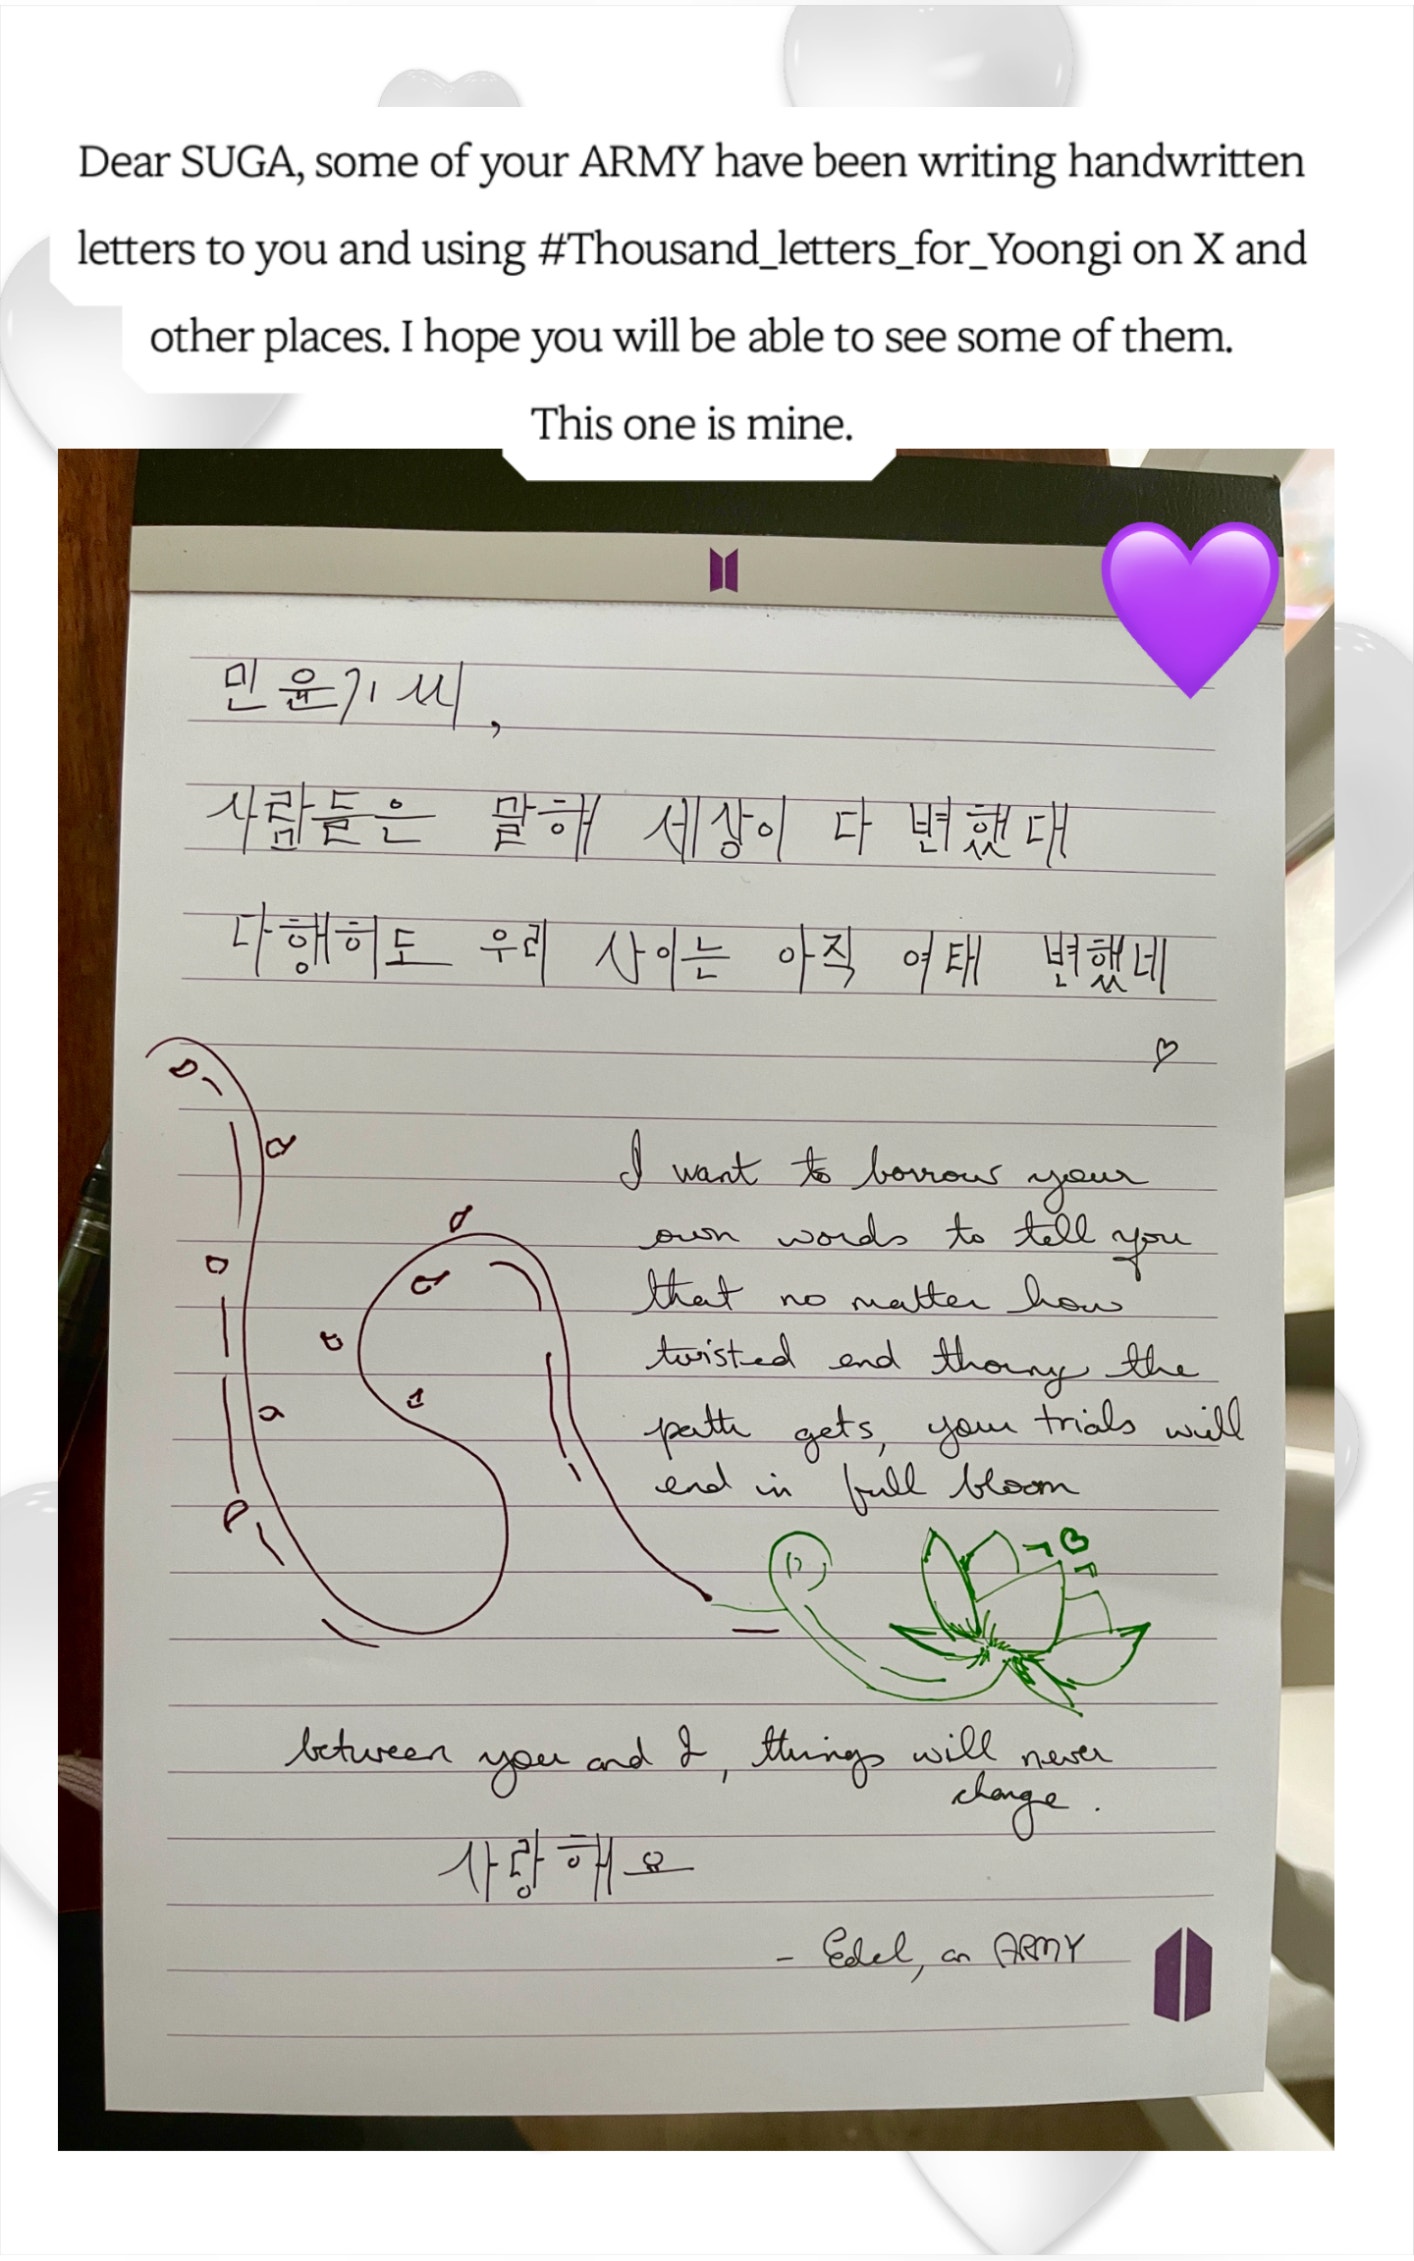 Dear SUGA, some of your ARMY have been writing handwritten
letters to you and using #Thousand_letters_for_Yoongi on X and
other places. I hope you will be able to see some of them.
This one is mine.
민윤기 씨,
사람들은 말해 세상이 다 변했대
다행히도 우리 사이는 아직 여태 변했네
I want to borrow your
own words to tell you
that no matter how
twisted and thorny the
path gets, your trials will
end in full bloom
between you and I, things will never
change.
사랑해요
- Edel, an ARMY